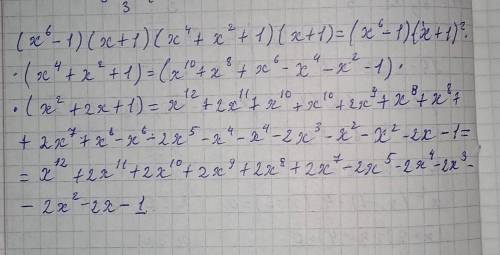 3
(x⁶-1)(x+1)(x⁴+x²+1)(x+1)=(x⁶-1)(x+1)²·
·(x⁴+x²+1)=(x¹⁰+x⁸+x⁶-x⁴-x²-1)·
·(x²+2x+1)=x¹²+2x¹¹+x¹⁰+x¹⁰+2x⁹+x⁸+x⁸+
+2x⁷+x⁶-x⁶-2x⁵-x⁴-x⁴-2x³-x²-x²-2x-1=
=x¹²+2x¹¹+2x¹⁰+2x⁹+2x⁸+2x⁷-2x⁵-2x⁴-2x³-
-2x²-2x-1